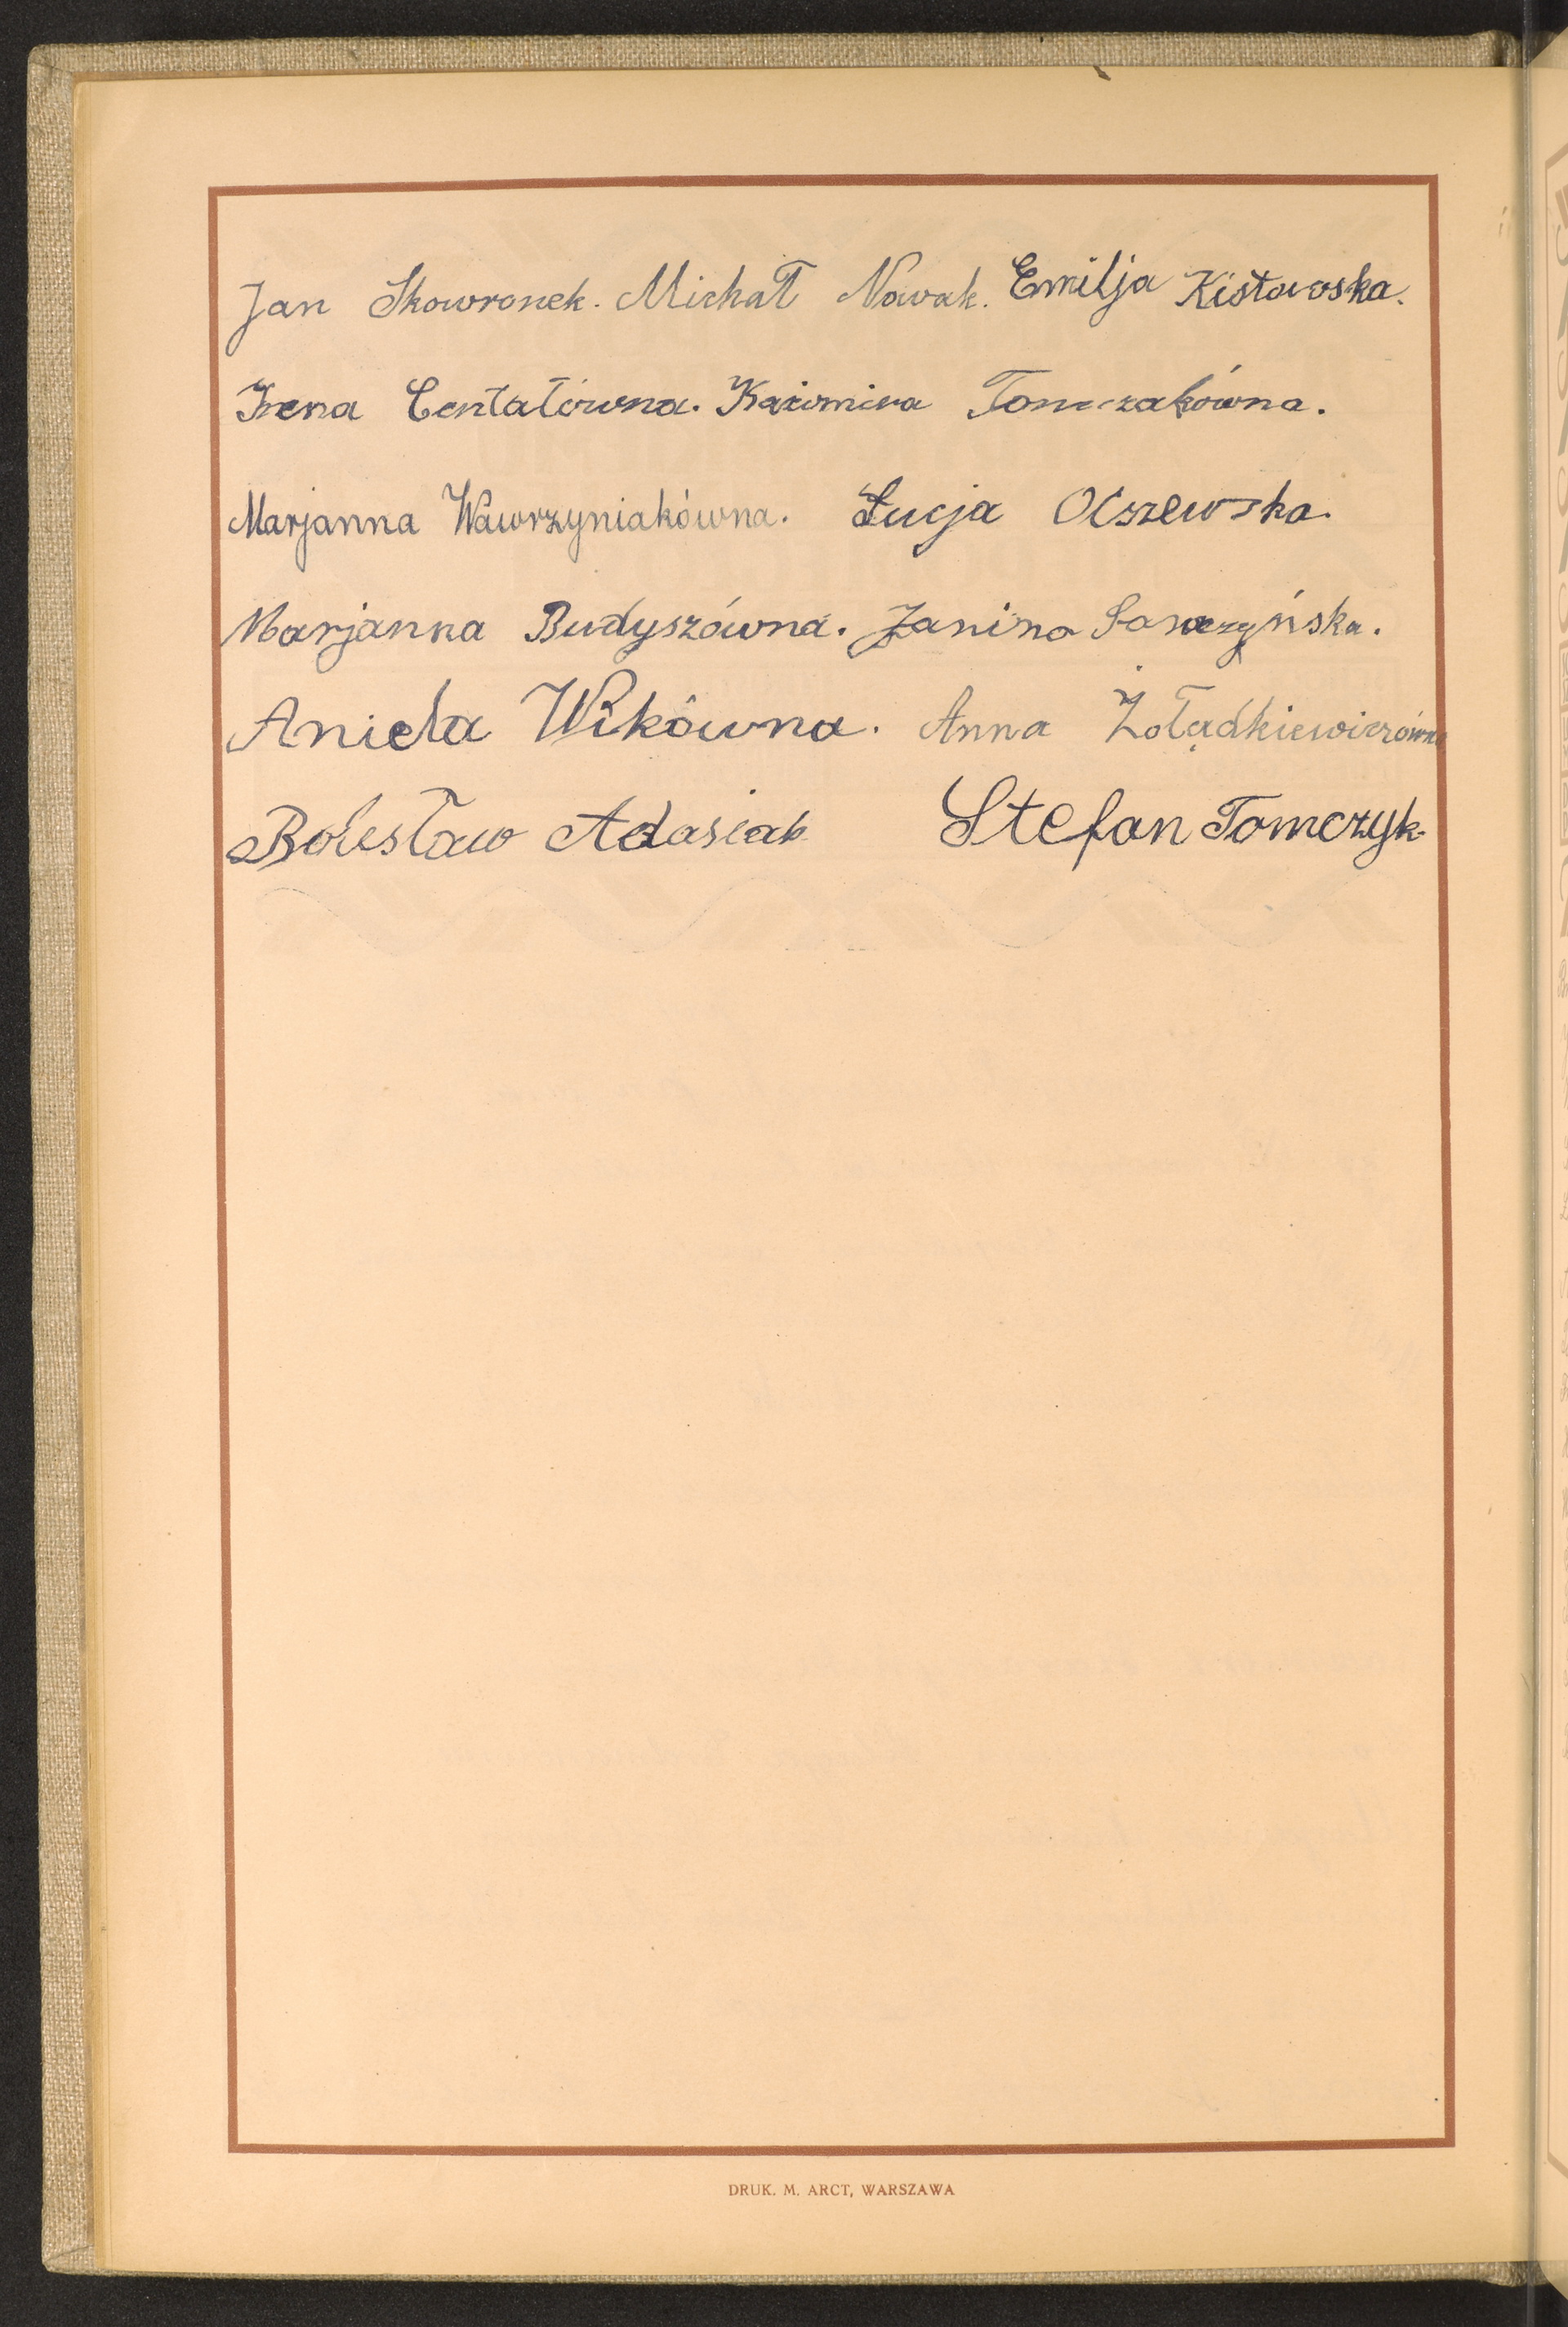 Jan Skowronek. Michał Nowak. Emilja Kistowska.
Irena Centałówna. Kazimiera Tomczakówna.
Marjanna Wawrzyniakówna. Łucja Olszewska.
Marjanna Budyszówna. Janina
Aniela Wikówna. Anna Żołądkiewiczówna
Bolesław Adasiak Stefan Tomczyk.
DRUK. M. ARCT, WARSZAWA